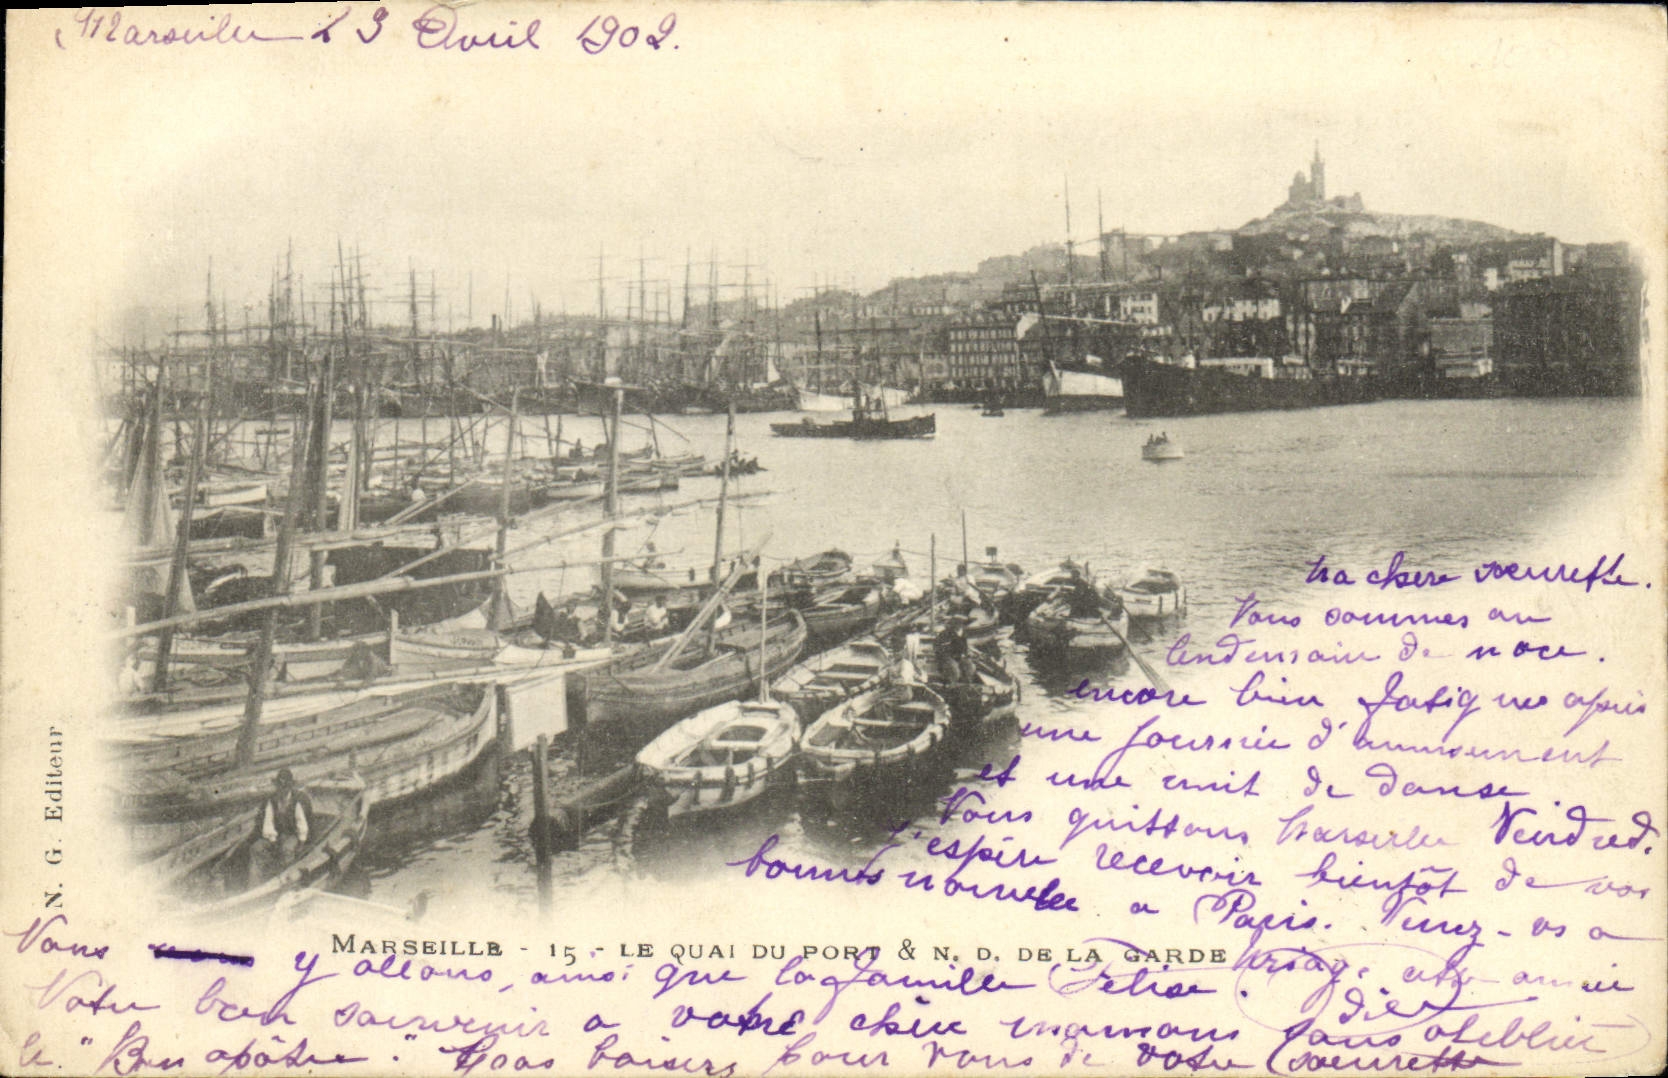 Marseille 23 Avril 1902.
Ma chère soeurette.
Nous sommes au
lendemain de noce.
encore bien fatigués après
une journée d'amusement
et une nuit de danse
Nous quittons Marseille Vendredi.
j'espère recevoir bientôt de vos
bonnes nouvelles a Paris. Venez-vs a
cette année
Nous y allons, ainsi que la famille
Notre bon souvenir a votre chère maman sans oublier
le "Bon apôtre." Gros baisers pour vous de votre soeurette
MARSEILLE - 15 - LE QUAI DU PORT & N. D. DE LA GARDE
N. G. Editeur